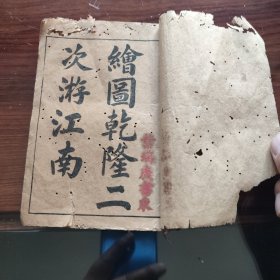 繪圖乾隆二
次游江南